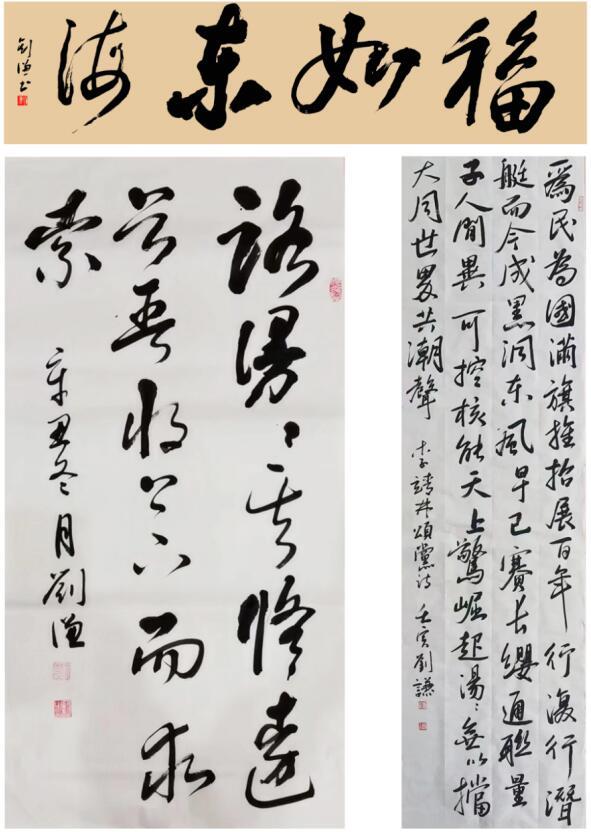 福如東海
劉謙书
路漫〻其修遠
兮吾將上下而求
索
辛丑冬月劉謙
為民為國滿旗展百年行復行潛
艇而今成黑洞东風早已賽长纓通聯量
子人間異可控核能天上驚崛起湯〻無以擋
大同世界共潮聲
李靖頌黨詩 壬寅劉謙